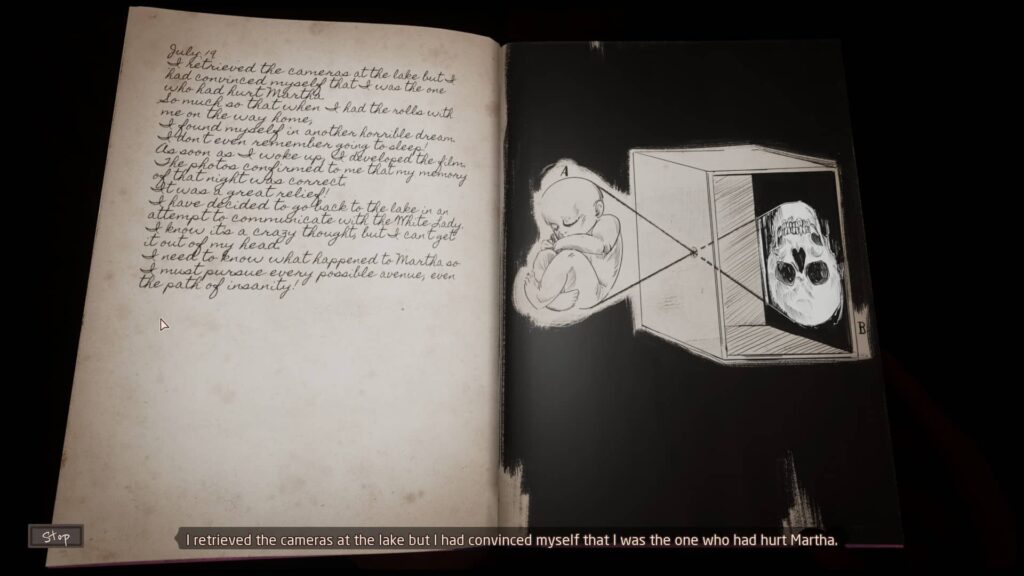 July 19
I retrieved the cameras at the lake but I
had convinced myself that I was the one
who had hurt Martha.
So much so that when I had the rolls with
me on the way home,
I found myself in another horrible dream.
I don't even remember going to sleep!
As soon as I woke up, I developed the film.
The photos confirmed to me that my memory
of that night was correct.
It was a great relief!
I have decided to go back to the lake in an
attempt to communicate with the White Lady.
I know it's a crazy thought, but I can't get
it out of my head.
I need to know what happened to Martha so
I must pursue every possible avenue, even
the path of insanity!
A
B
Stop
I retrieved the cameras at the lake but I had convinced myself that I was the one who had hurt Martha.